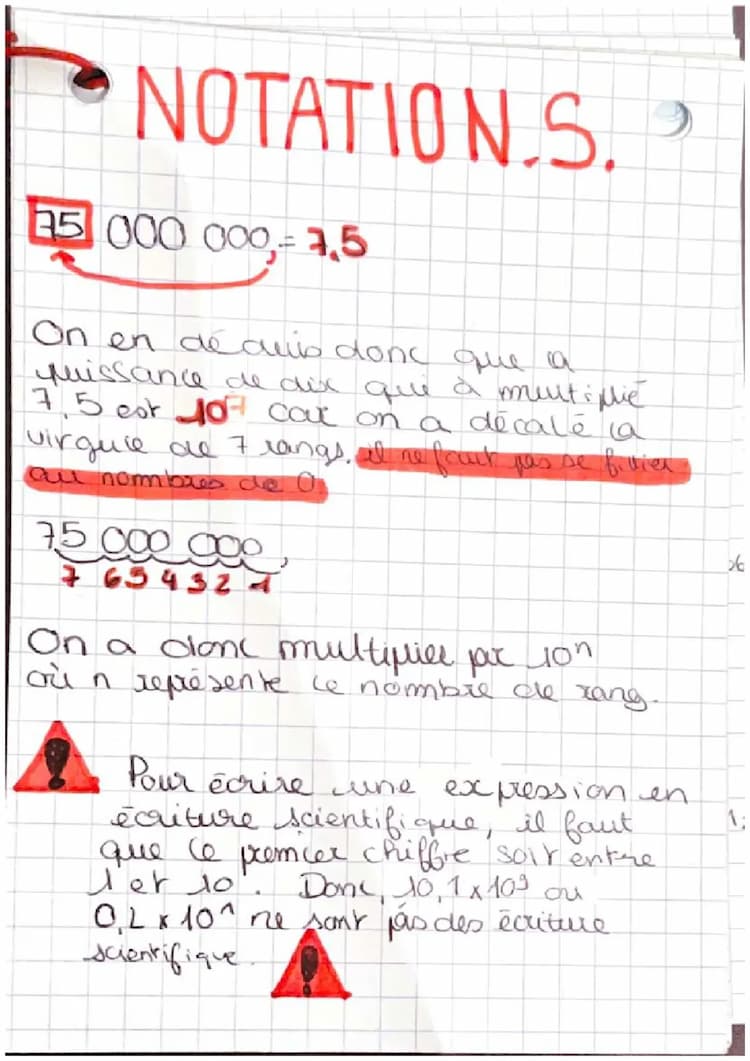 NOTATION.S.
75 000 000,= 7,5
On en déduis donc que la
puissance de dix qui à multiplié
7,5 est 10⁷ car on a décalé la
virgule de 7 rangs. il ne faut pas se fivier
au nombres de 0.
75 000 000,
7 6 5 4 3 2 1
On a donc multiplier par 10ⁿ
où n représente le nombre de rang.
!
Pour écrire une expression en
écriture scientifique, il faut
que le premier chiffre soit entre
1 et 10. Donc, 10,1 x 10⁹ ou
0,2 x 10¹ ne sont pas des écriture
scientifique.
!